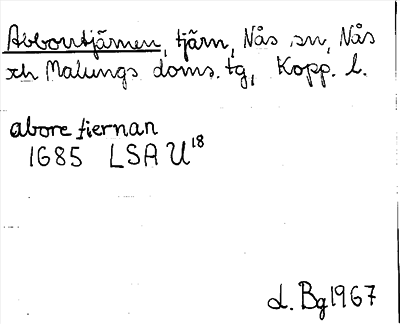 Abborrtjärnen, tjärn, Nås sn, Nås
och Malungs doms. tg, Kopp. l.
abore tiernan
1685 LSA U18
d. Bg 1967